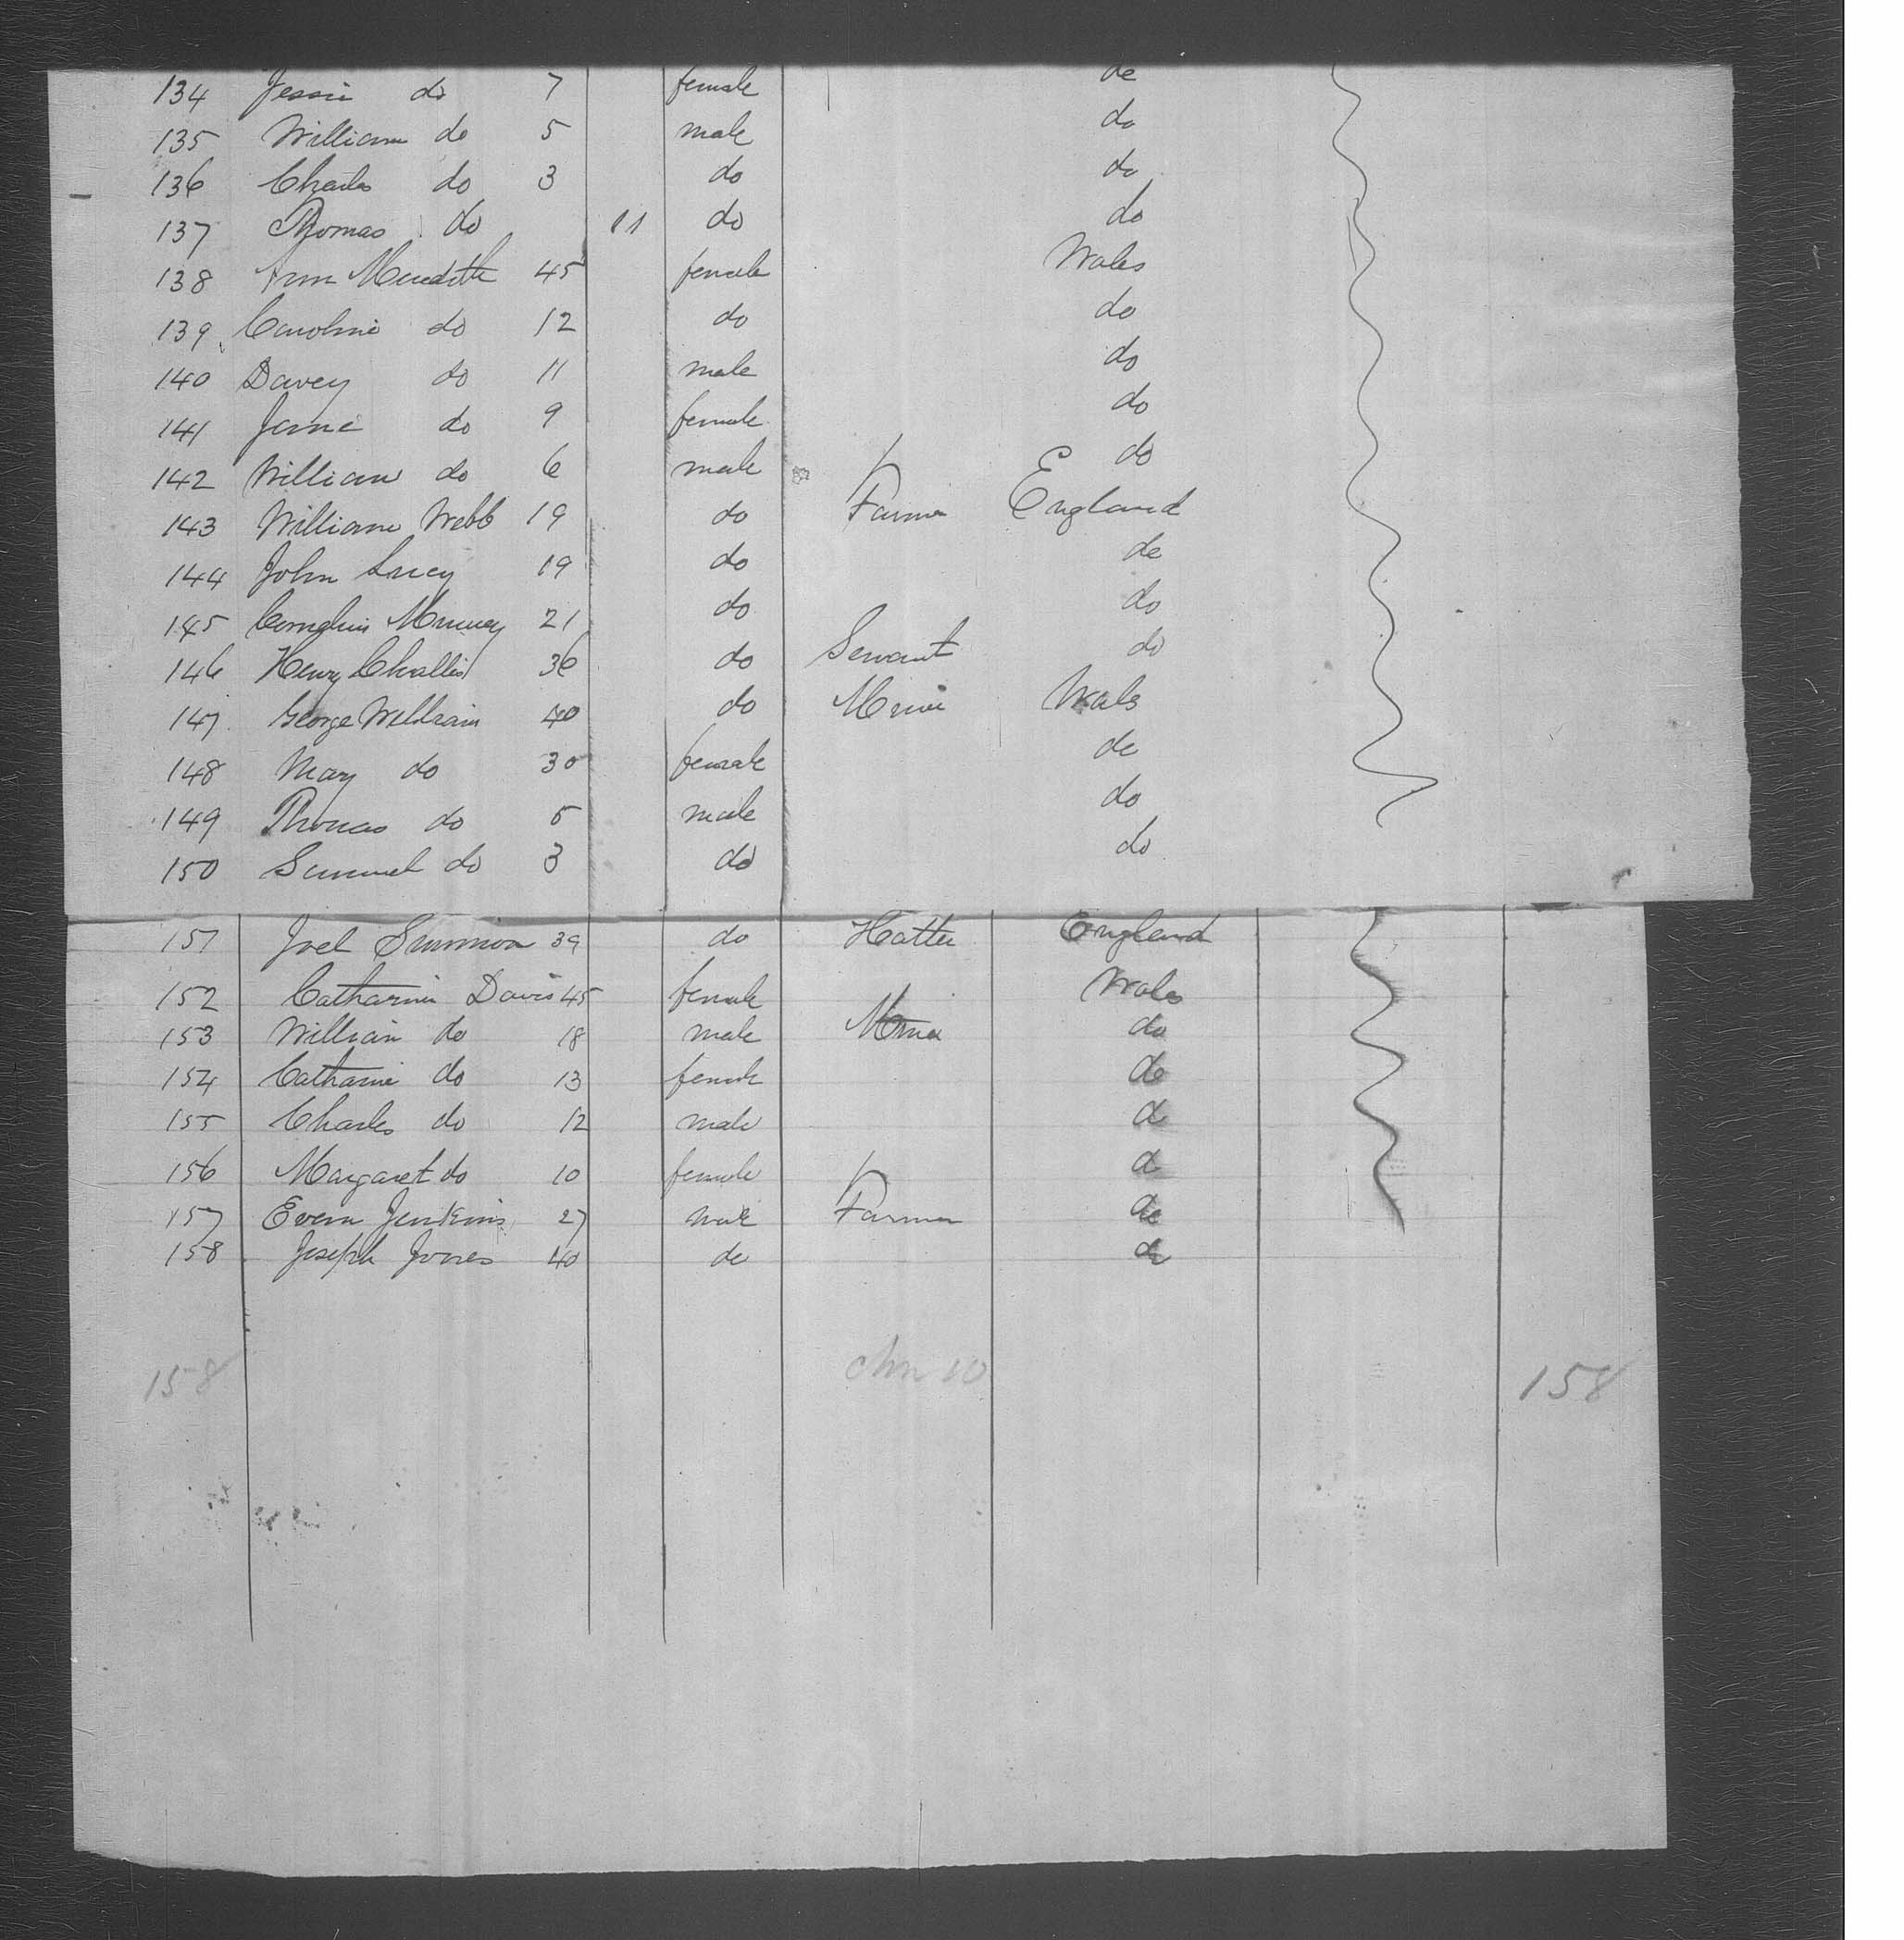 134 Jessie do 7 female do
135 William do 5 male do
136 Charles do 3 do do
137 Thomas do 11 do do
138 Ann Meredith 45 female Wales
139 Caroline do 12 do do
140 Davey do 11 male do
141 Jane do 9 female do
142 William do 6 male do
143 William Webb 19 do Farmer England
144 John Lucy 19 do do
145 Cornelius 21 do do
146 Henry Challis 36 do Servant do
147 George William 40 do Miner Wales
148 Mary do 30 female do
149 Thomas do 5 male do
150 Samuel do 3 do do
151 Joel Simmion 39 do Hatter England
152 Catharine Davis 45 female Wales
153 William do 18 male Miner do
154 Catharine do 13 female do
155 Charles do 12 male do
156 Margaret do 10 female do
157 Evan Jenkins 27 male Farmer do
158 Joseph Jones 40 do do
158 10 158